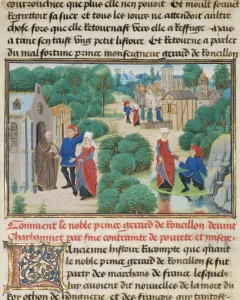 courouchee que plus elle nen pouoit Et moult souuēt
regrettoit sa suer et tous les iours ne attendoit aultre
chose fors que elle retournast vers elle a reffuge Mais
a tant sen taist vng petit listoire Et retourne a parler
du mal fortune prince monseigneur gerard de Roncillon
Comment le noble prince gerard de Roncillon deuint
charbonnier par fine contrainte de pourete et misere
Ancienne histoire Racompte que quant
le noble prince gerard de Roncillon se fut
party des marchans de france lesquelz
luy auoient dit nouuelles de la mort du
Roy othon de honguerie et des francois